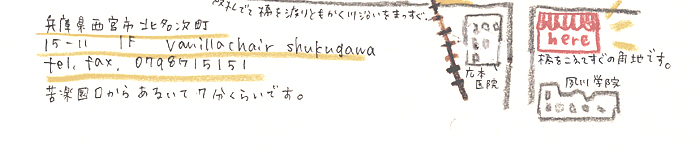 橋を渡りともかく川沿いをまっすぐ。
兵庫県西宮市北名次町
15-11 1F vanillachair shukugawa
tel, fax. 0798715151
苦楽園口からあるいて7分くらいです。
広本
医院
here
橋をこえてすぐの角地です。
夙川学院